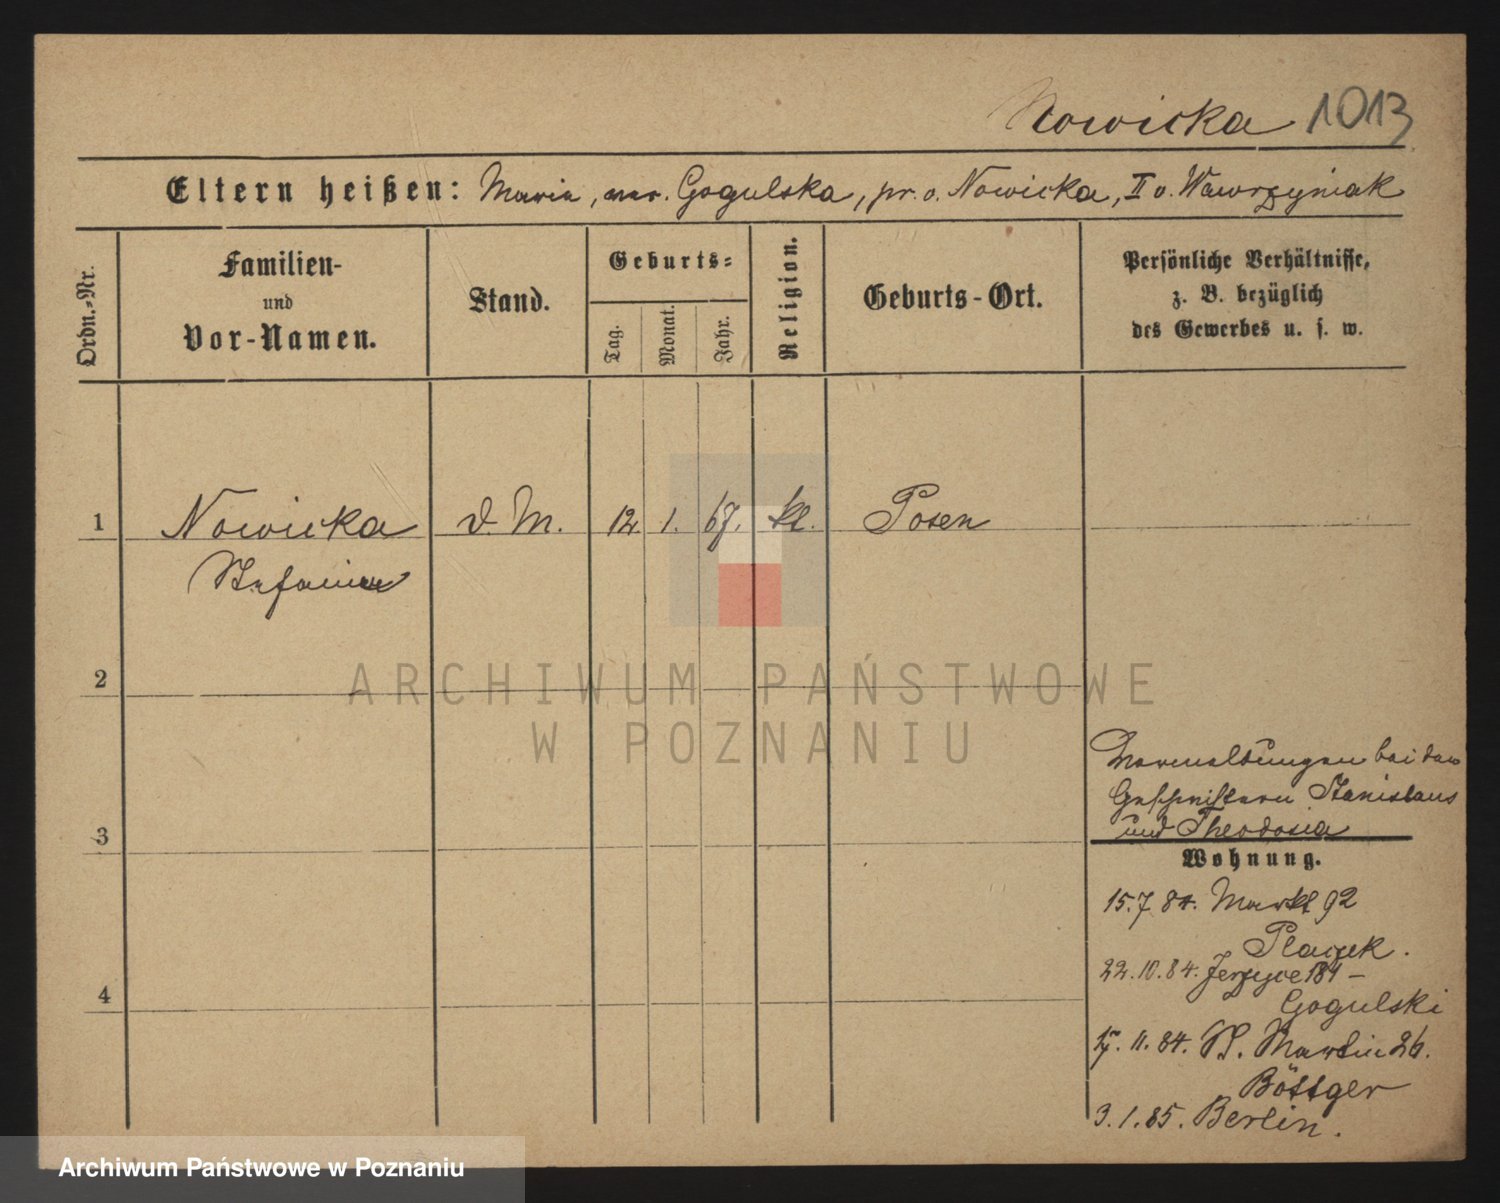 Nowicka 1013
Eltern heißen: Maria, geb. Gogulska, pr. v. Nowicka, II v. Wawrzyniak
Ordn.-Nr.
Familien-
und
Vor-Namen.
Stand.
Geburts-
Tag.
Monat.
Jahr.
Religion.
Geburts-Ort.
Persönliche Verhältnisse,
z. B. bezüglich
des Gewerbes u. s. w.
1 Nowicka d. M. 12. 1. 67. kt. Posen
Stefania
2
ARCHIWUM PAŃSTWOWE
W POZNANIU
bei den
Geschwistern Stanislaus
und Theodosia
3
Wohnung.
15.7.84. Markt 92
22.10.84. Jerzyce 184 –
4
Gogulski
11.84. St. Martin 26.
Böttger
3.1.85. Berlin.
Archiwum Państwowe w Poznaniu